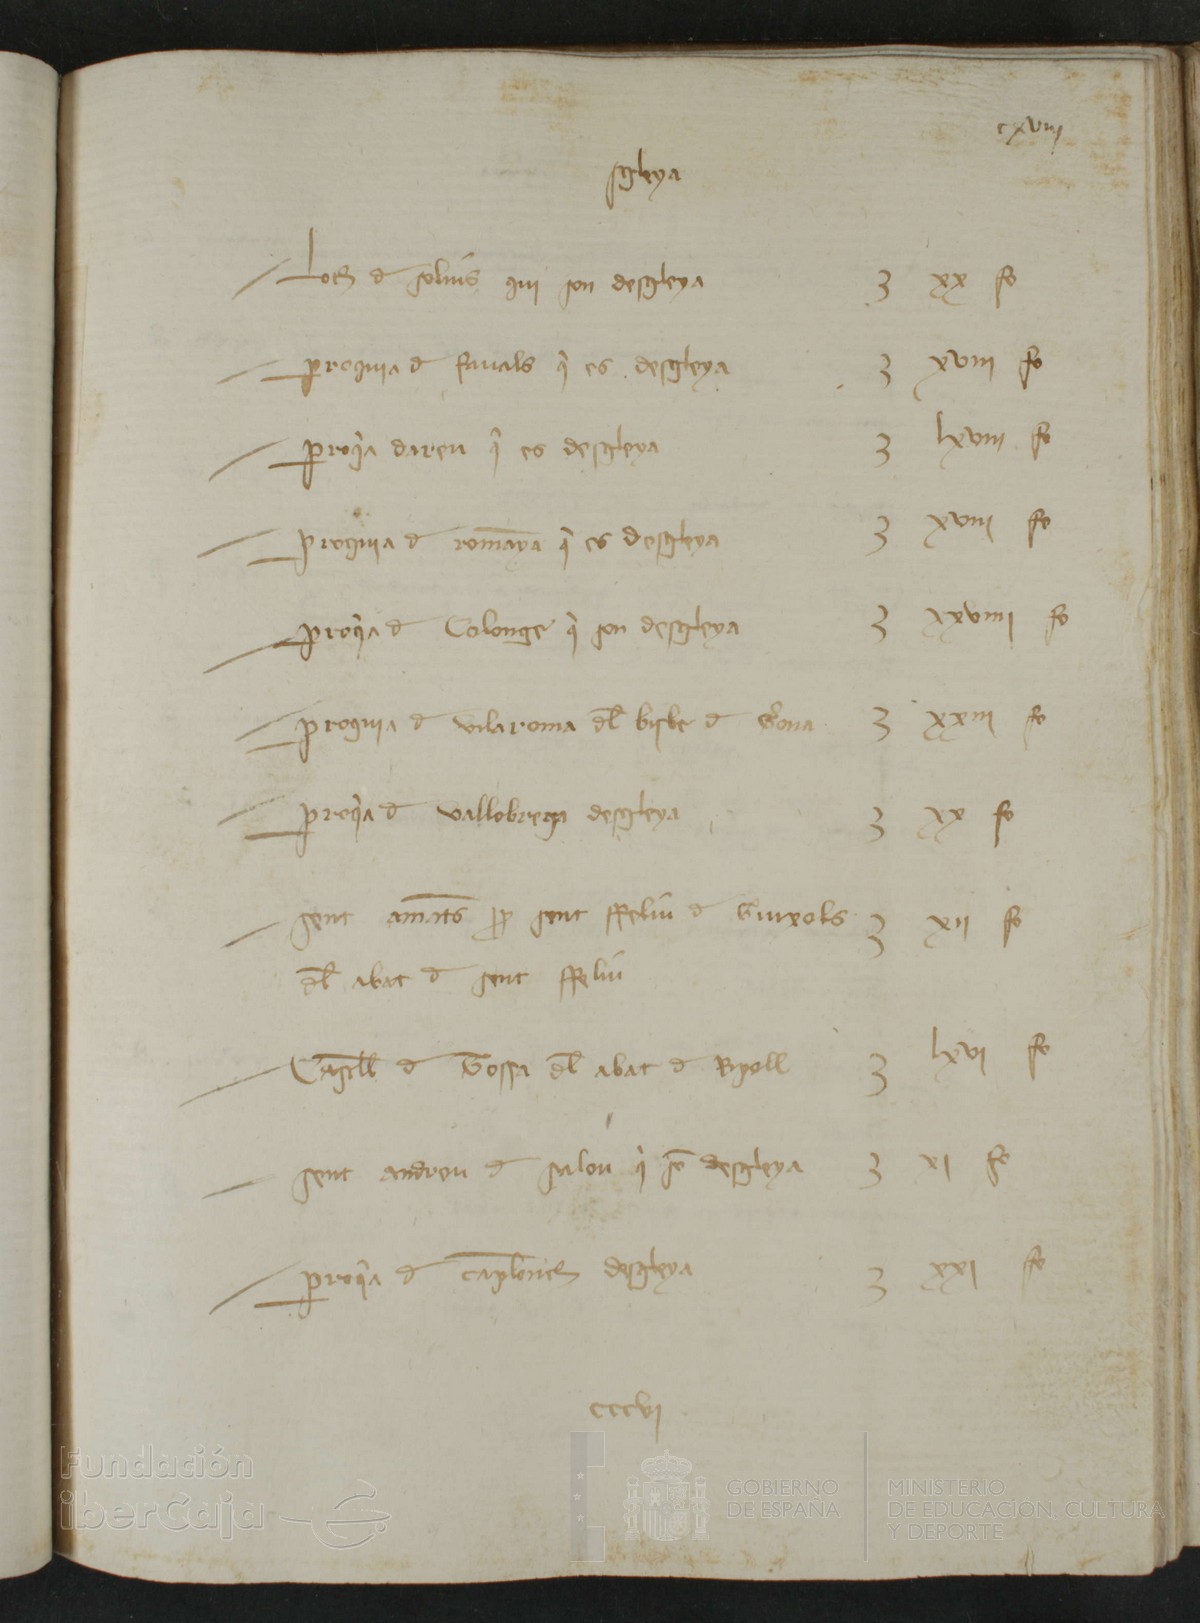 cxviii
sgleya
Loch d solius qui son desgleya З xx fo
Parroquia d fanals q̄ es desgleya З xviii fo
Parroq̄a dareu q̄ es desgleya З lxviii fo
Parroquia d romāya q̄ es desgleya З xviii fo
Parroq̄a d Colonge q̄ son desgleya З xxviiii fo
Parroquia d vilaroma dl̄ bisbe d Gˀona З xxiii fo
Parroq̄a d vallobrega desgleya З xx fo
Sent amātˢ sent ffeliu d Guixols З xii fo
dl̄ abat d sent ffeliu
Castell d Tossa dl̄ abat d Ripoll З lxvi fo
Sent andreu d salou q̄ sō desgleya З xi fo
Parroq̄a d desgleya З xxi fo
cccvi
Fundación
iberCaja
GOBIERNO
DE ESPAÑA
MINISTERIO
DE EDUCACIÓN, CULTURA
Y DEPORTE